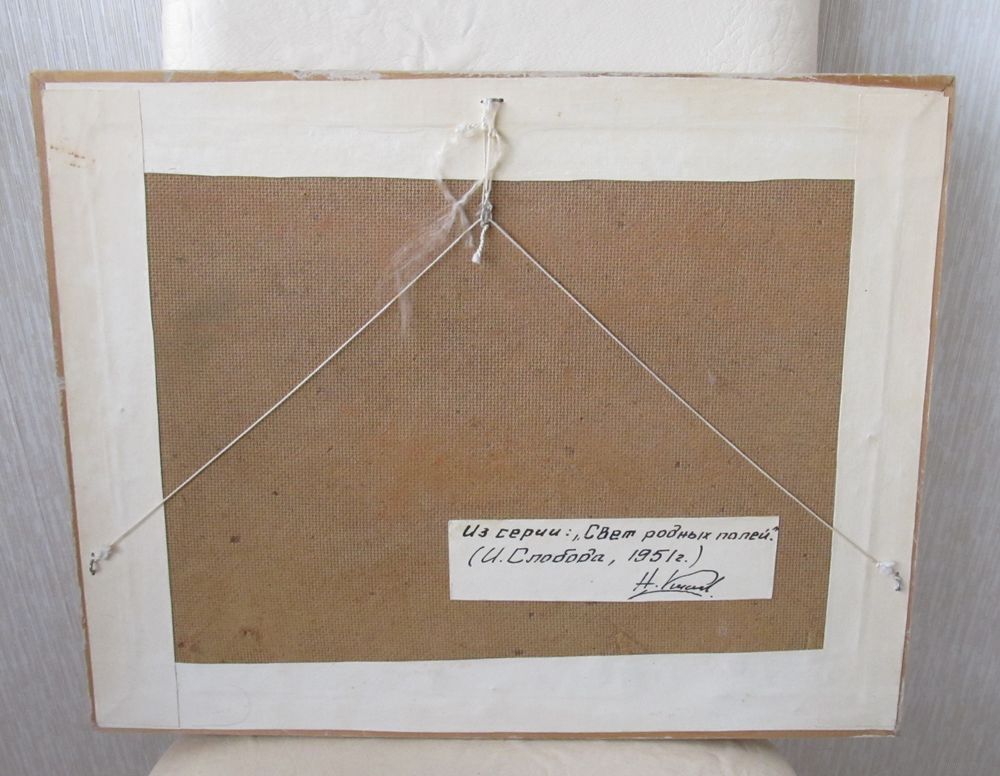 Из серии: „Свет родных полей."
(И. Слобода, 1951г.)
Н.